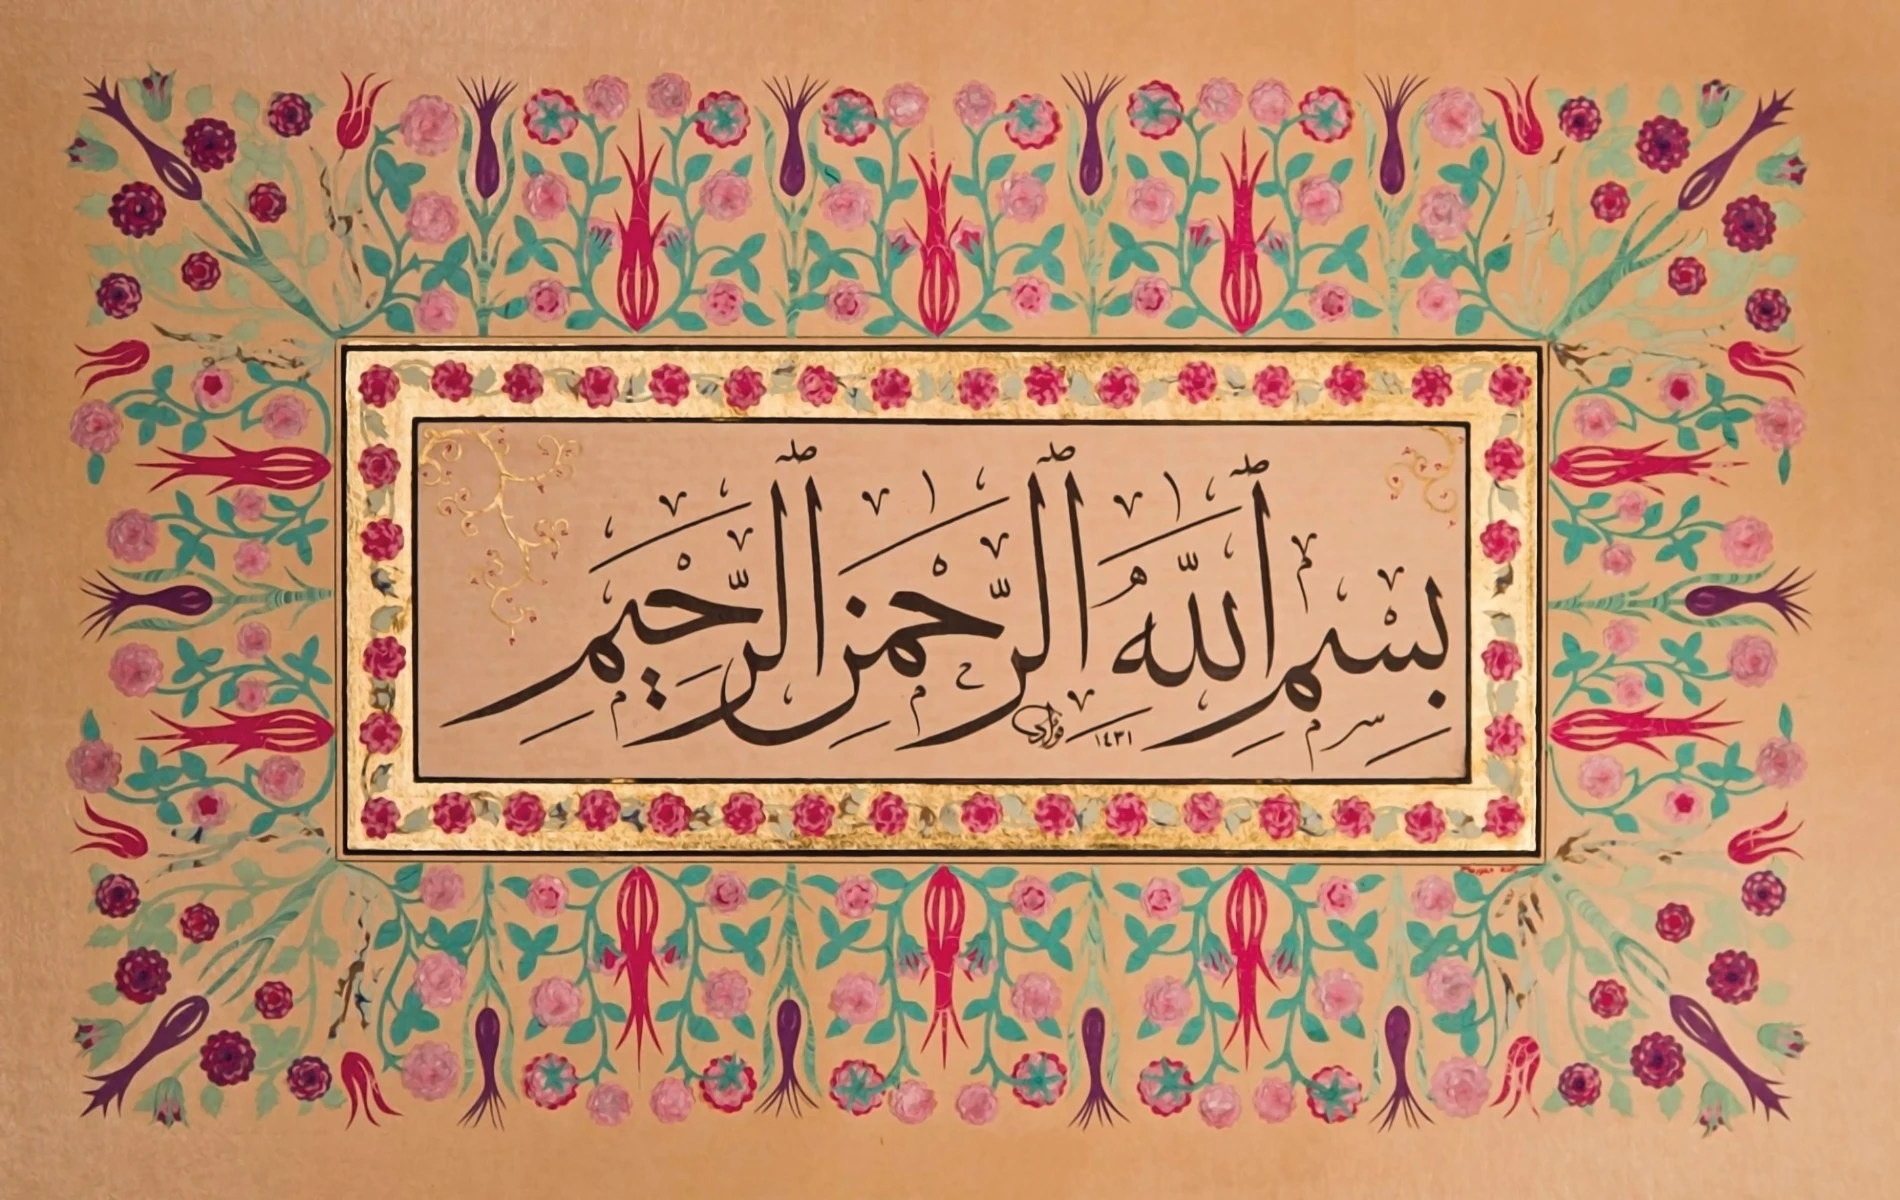 بِسْمِ ٱللَّهِ ٱلرَّحْمٰنِ ٱلرَّحِيمِ
فؤاد ١٤٣١